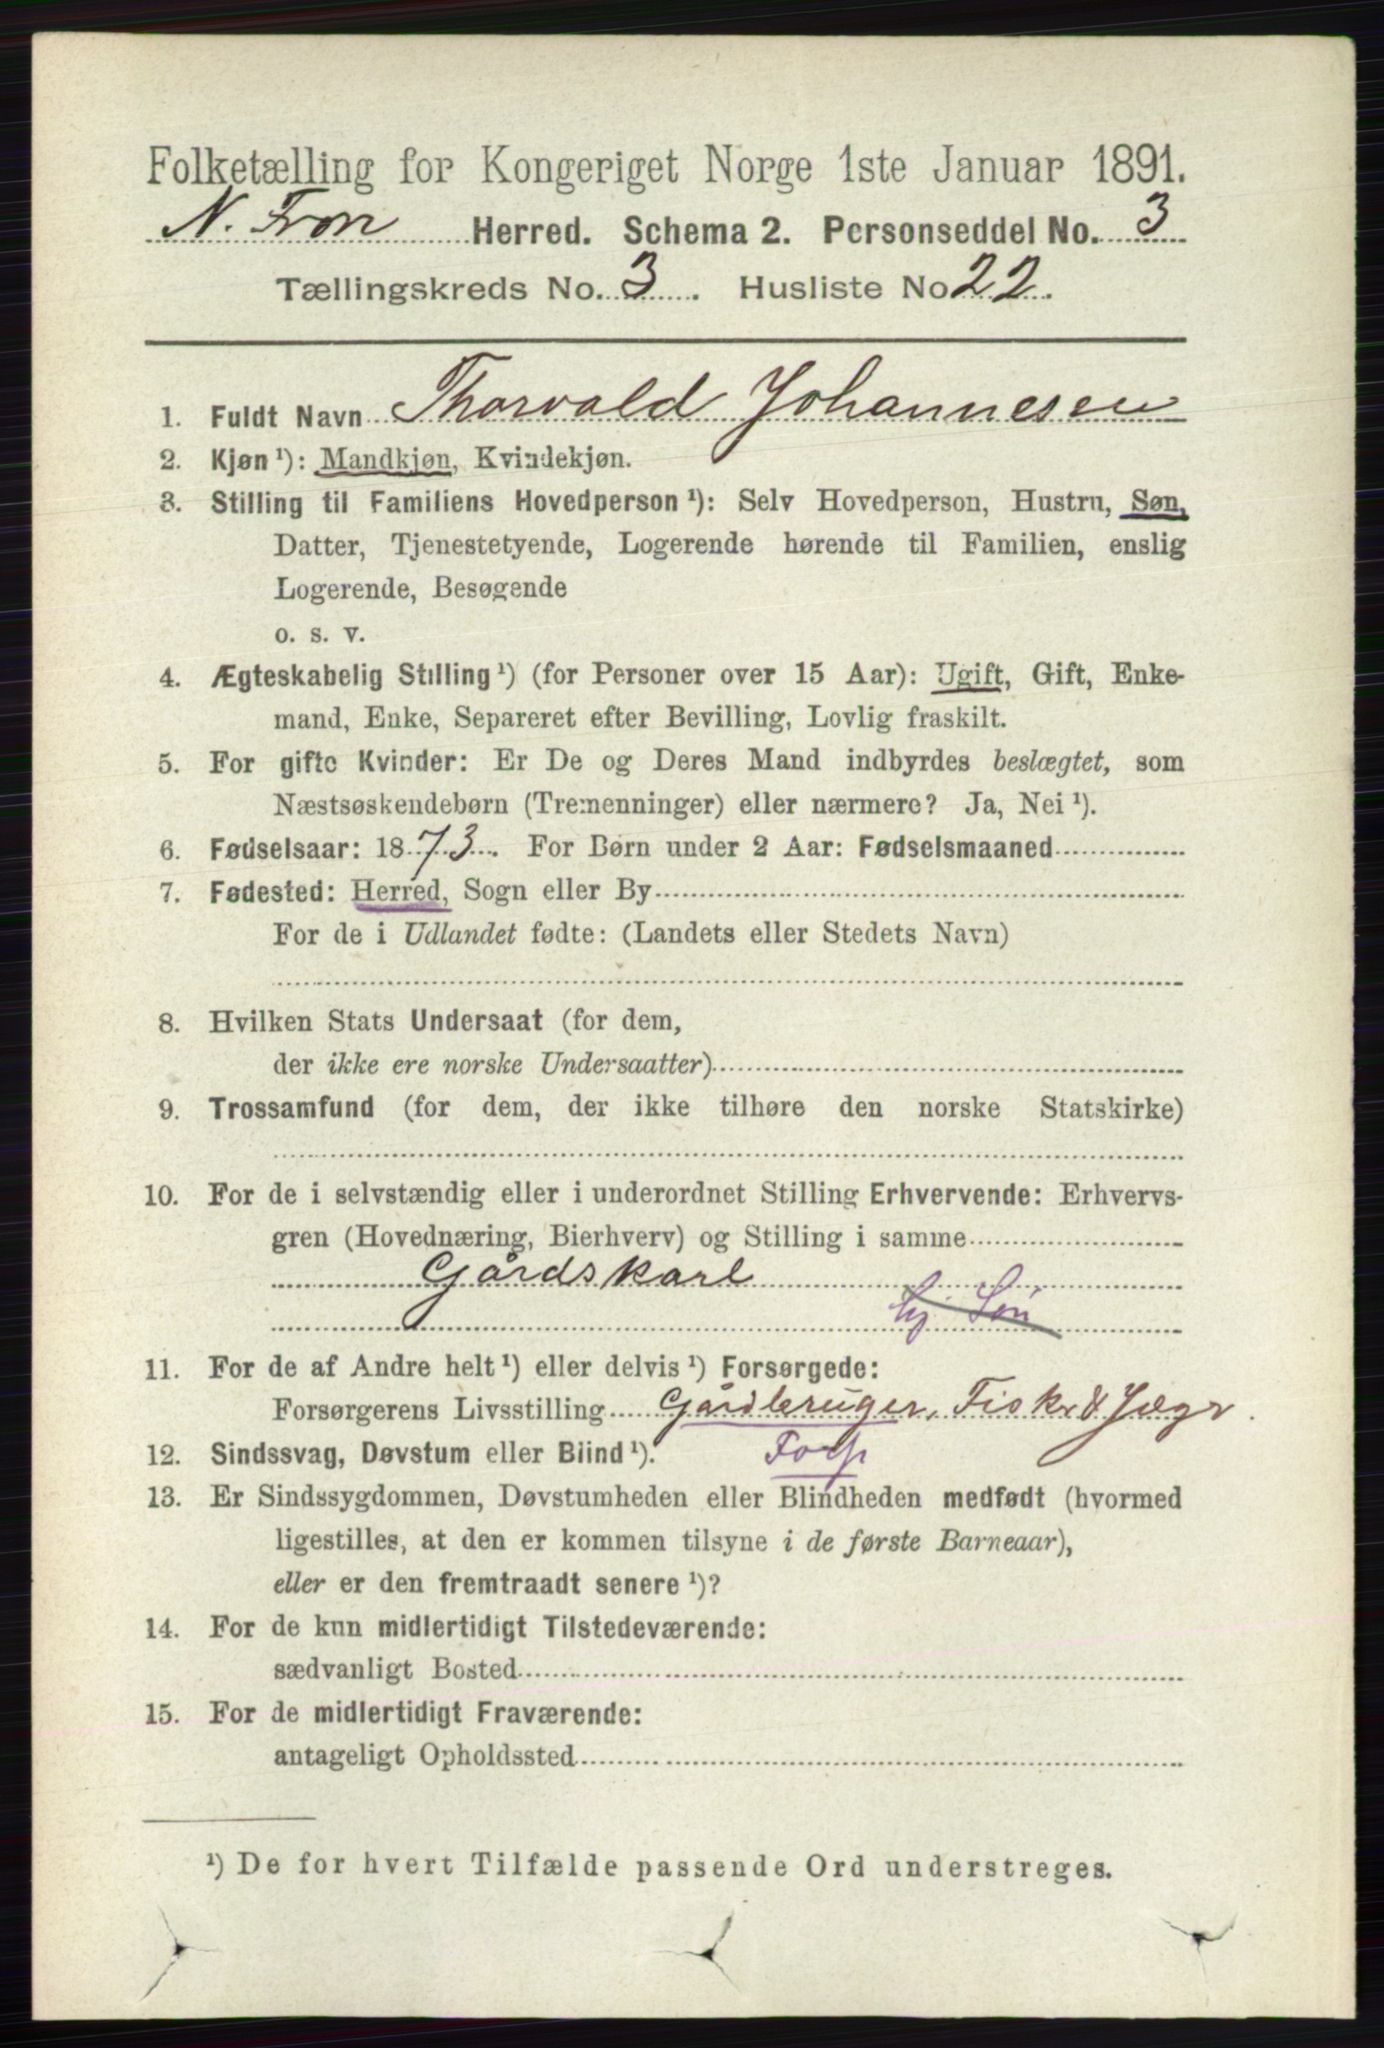 Folketælling for Kongeriget Norge 1ste Januar 1891.
N. Fron Herred. Schema 2. Personseddel No. 3
Tællingskreds No. 3. Husliste No 22.
1. Fuldt Navn Thorvald Johannesen
2. Kjøn ¹): Mandkjøn, Kvindekjøn.
3. Stilling til Familiens Hovedperson ¹): Selv Hovedperson, Hustru, Søn,
Datter, Tjenestetyende, Logerende hørende til Familien, enslig
Logerende, Besøgende
o. s. v.
4. Ægteskabelig Stilling ¹) (for Personer over 15 Aar): Ugift, Gift, Enke-
mand, Enke, Separeret efter Bevilling, Lovlig fraskilt.
5. For gifte Kvinder: Er De og Deres Mand indbyrdes beslægtet, som
Næstsøskendebørn (Tremenninger) eller nærmere? Ja, Nei ¹).
6. Fødselsaar: 1873. For Børn under 2 Aar: Fødselsmaaned
7. Fødested: Herred, Sogn eller By
For de i Udlandet fødte: (Landets eller Stedets Navn)
8. Hvilken Stats Undersaat (for dem,
der ikke ere norske Undersaatter)
9. Trossamfund (for dem, der ikke tilhøre den norske Statskirke)
10. For de i selvstændig eller i underordnet Stilling Erhvervende: Erhvervs-
gren (Hovednæring, Bierhverv) og Stilling i samme
Gårdskarl
Søn
11. For de af Andre helt ¹) eller delvis ¹) Forsørgede:
Forsørgerens Livsstilling Gårdbruger, Fisk. & Jæger.
12. Sindssvag, Døvstum eller Blind ¹).
13. Er Sindssygdommen, Døvstumheden eller Blindheden medfødt (hvormed
ligestilles, at den er kommen tilsyne i de første Barneaar),
eller er den fremtraadt senere ¹)?
14. For de kun midlertidigt Tilstedeværende:
sædvanligt Bosted
15. For de midlertidigt Fraværende:
antageligt Opholdssted
¹) De for hvert Tilfælde passende Ord understreges.